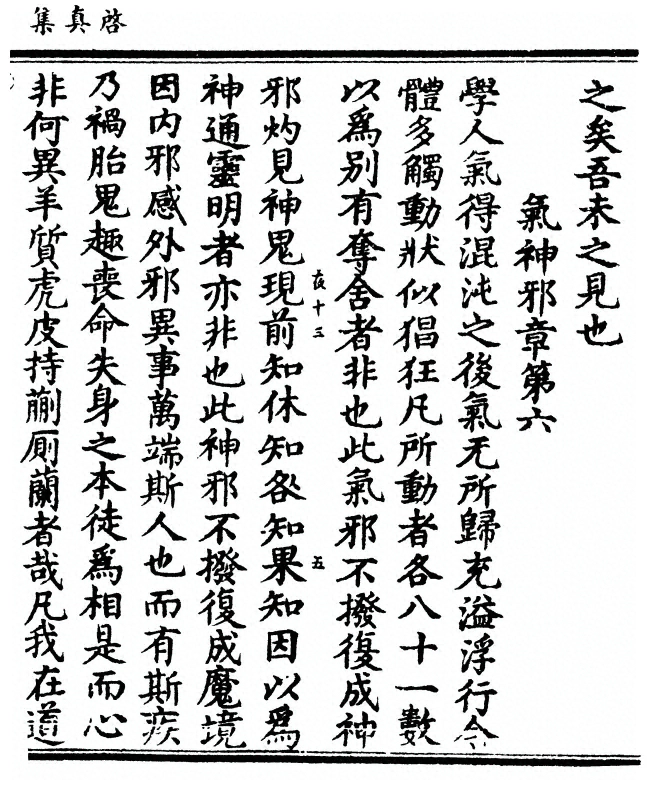 啓真集
之矣吾未之見也
氣神邪章第六
學人氣得混沌之後氣无所歸充溢浮行令
體多觸動狀似猖狂凡所動者各八十一數
以爲別有奪舍者非也此氣邪不撥復成神
夜十三 五
邪灼見神鬼現前知休知咎知果知因以爲
神通靈明者亦非也此神邪不撥復成魔境
因内邪感外邪異事萬端斯人也而有斯疾
乃禍胎鬼趣喪命失身之本徒爲相是而心
非何異羊質虎皮持蒯厠蘭者哉凡我在道